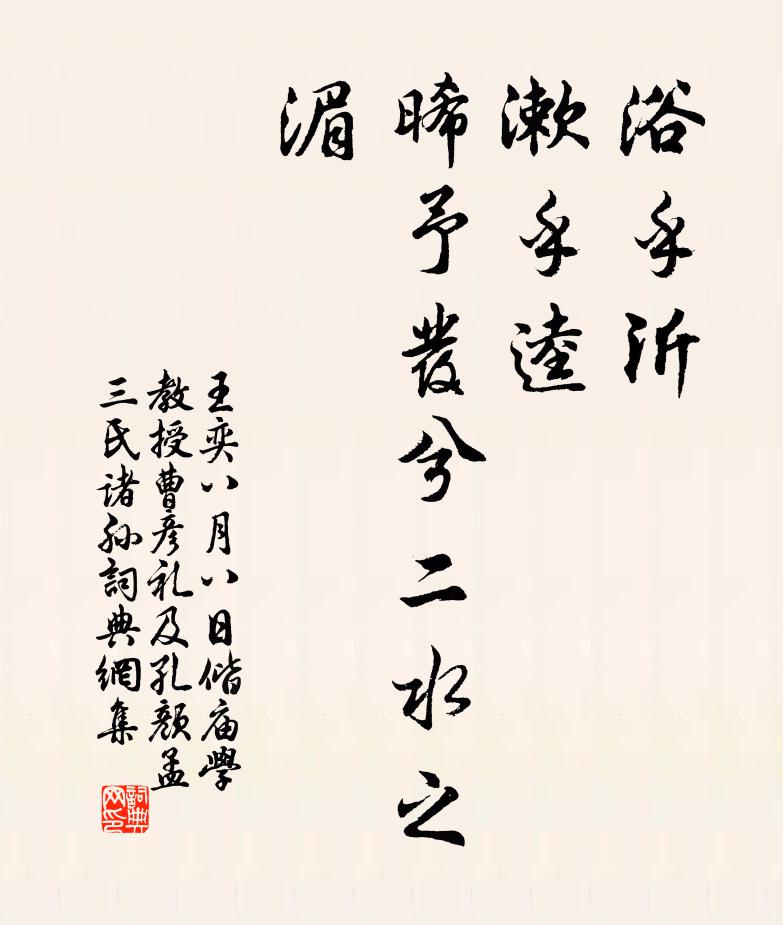 浴乎沂
漱乎逵
晞予發兮二水之
湄
王奕八月八日偕庙學
教授曹彦礼及孔顔孟
三氏诸孙詞典網集
詞典
网印